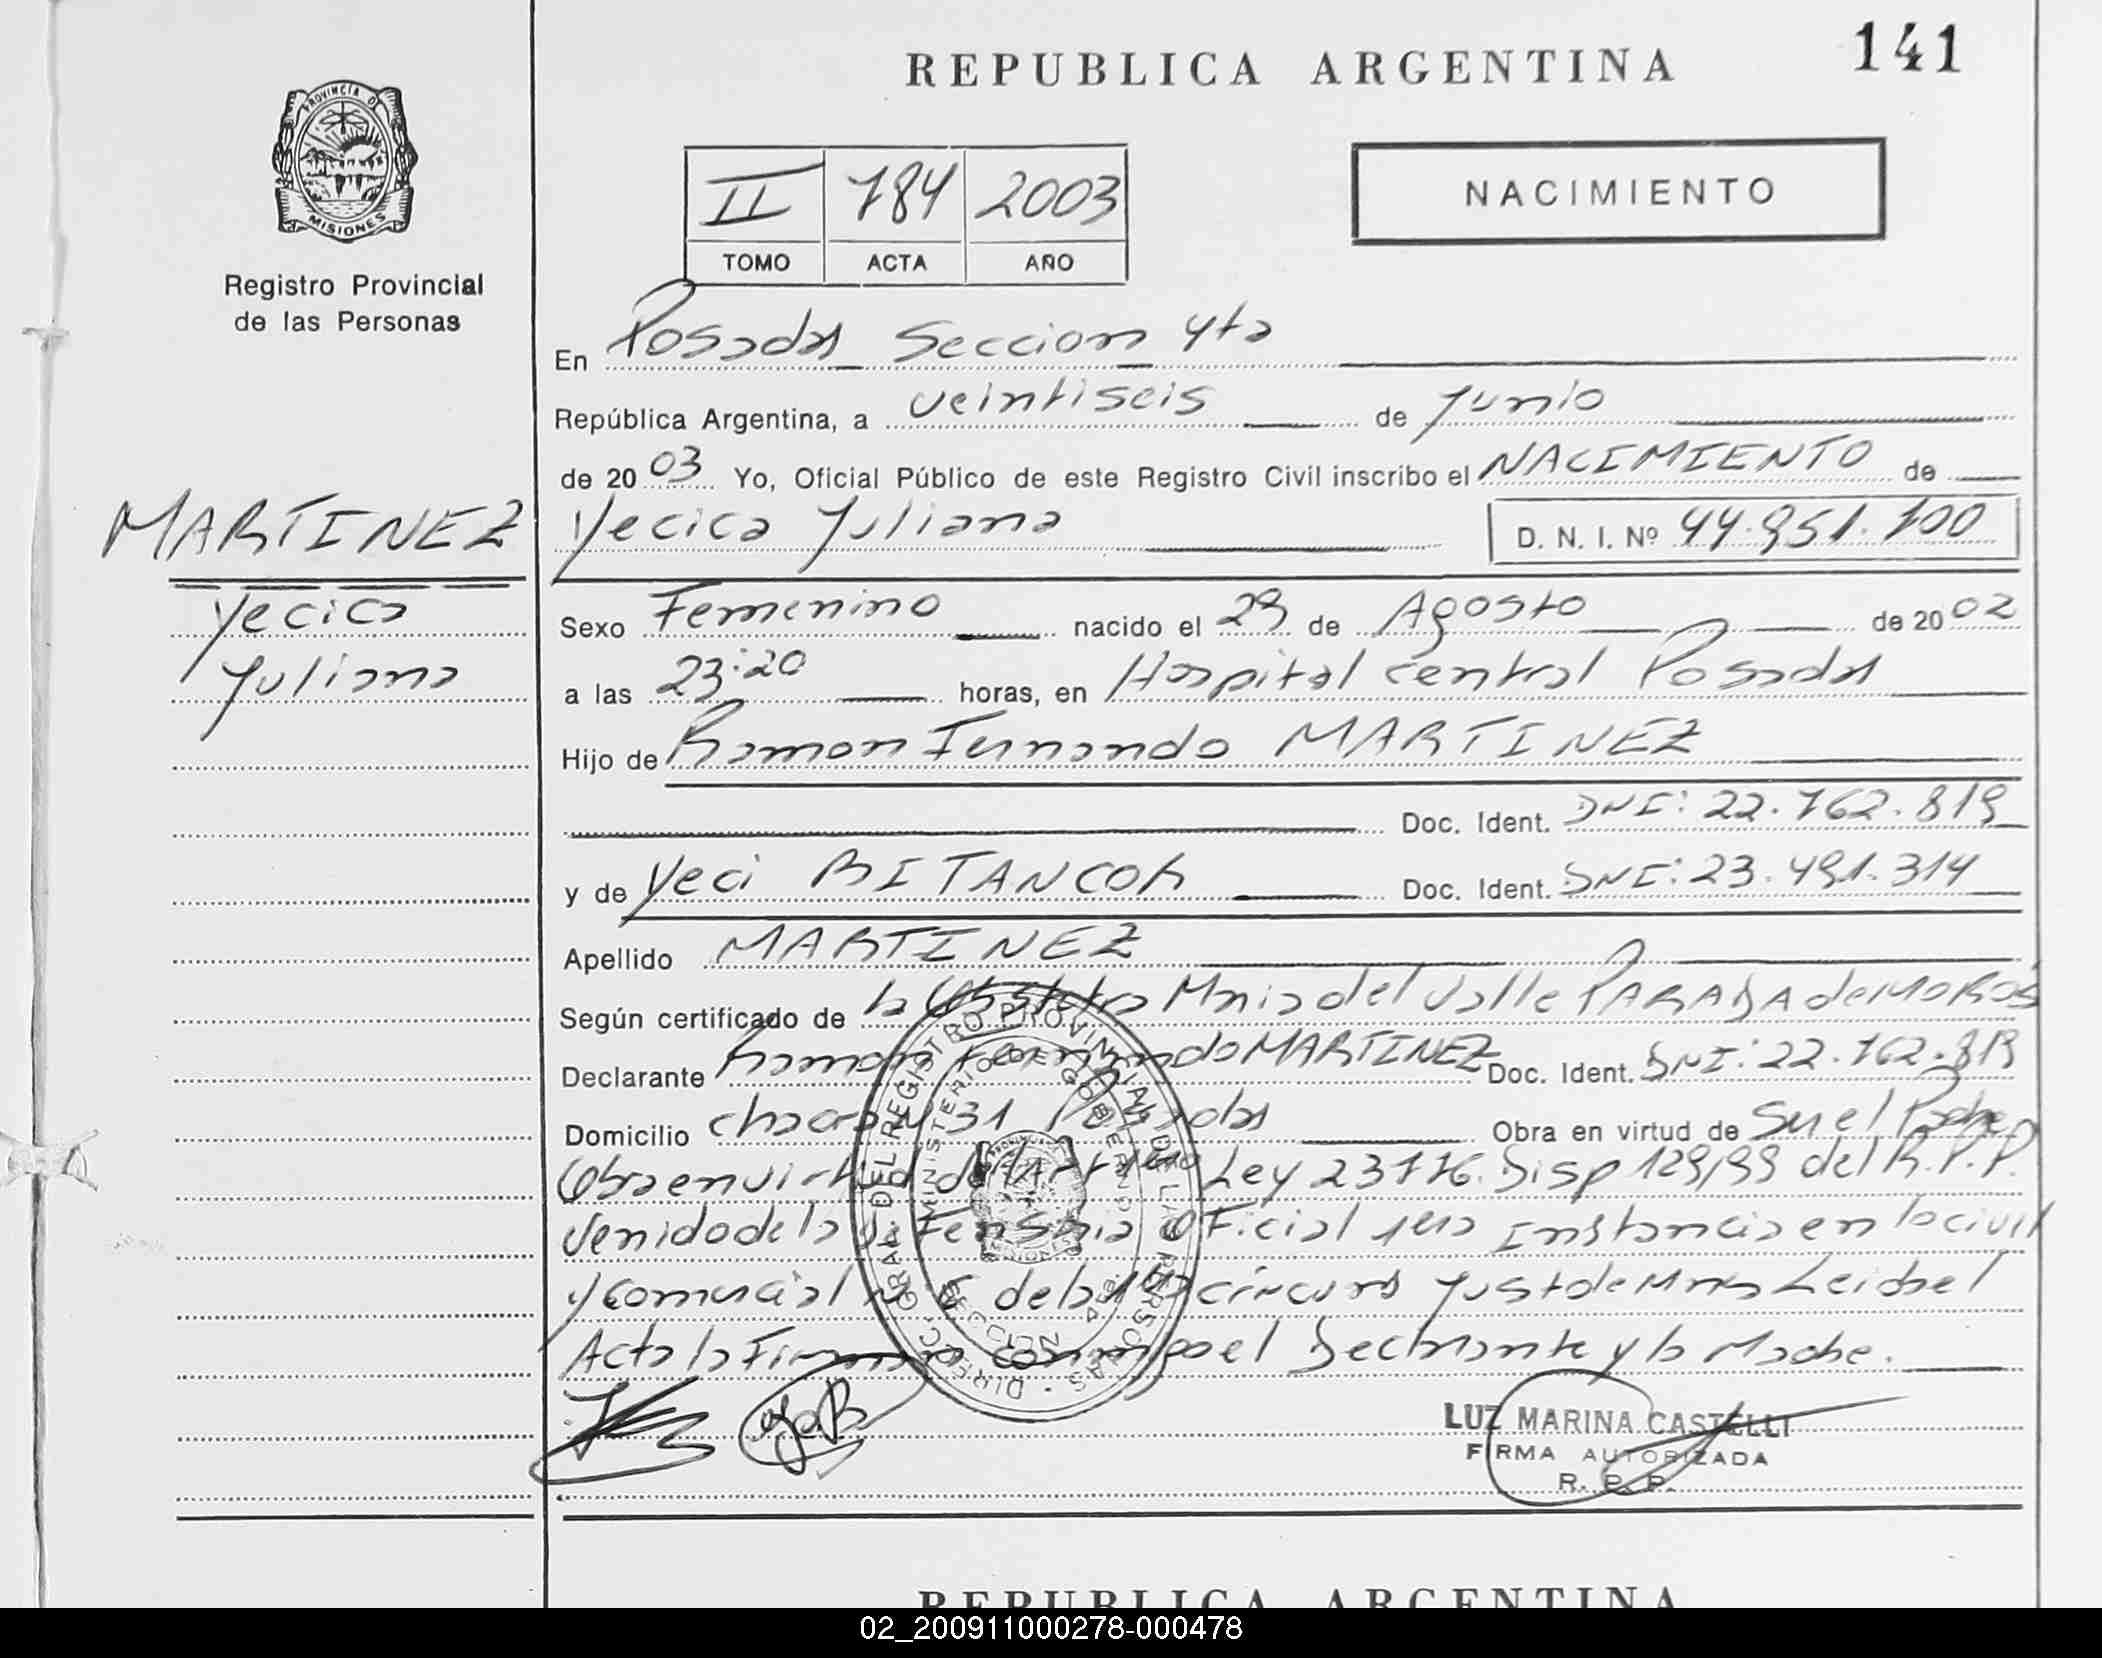 REPUBLICA ARGENTINA
141
PROVINCIA D MISIONES
Registro Provincial
de las Personas
II 784 2003
TOMO ACTA AÑO
NACIMIENTO
En Posadas Seccion 4ta
República Argentina, a veintiseis de Junio
de 2003 Yo, Oficial Público de este Registro Civil inscribo el NACIMIENTO de
MARTINEZ
Yecica
Juliana
Yecica Juliana D. N. I. Nº 44.951.700
Sexo Femenino nacido el 29 de Agosto de 2002
a las 23:20 horas, en Hospital central Posadas
Hijo de Ramon Fernando MARTINEZ
Doc. Ident. DNI: 22.762.819
y de Yeci BITANCOR Doc. Ident. DNI: 23.491.314
Apellido MARTINEZ
Según certificado de la Obstetra Maria del Valle PARADA de MOROS
Declarante Ramon Fernando MARTINEZ Doc. Ident. DNI: 22.762.819
Domicilio chacra 31 Posadas Obra en virtud de Ser el Padre
Obra en virtud del Art 1ero Ley 23776. Disp 129/99 del R.P.P.
Venido de la Defensoria Oficial 1era Instancia en lo civil
y Comercial N de la 1era circuns Just de Mnes Leida el
Acta la Firman conmigo el Declarante y la Madre.
DIRECC. GRAL. DEL REGISTRO PROVINCIAL DE LAS PERSONAS
MINISTERIO DE GOBIERNO
MISIONES
LUZ MARINA CASTELLI
FIRMA AUTORIZADA
R. P. P.
REPUBLICA ARGENTINA
02_200911000278-000478